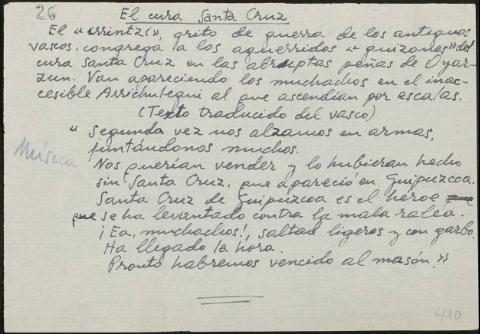 26
El cura Santa Cruz
El "irrintzi", grito de guerra de los antiguos
vascos, congrega a los aguerridos "guizones" del
cura Santa Cruz en las abruptas peñas de Oyar-
zun. Van apareciendo los muchachos en el inac-
cesible Arrichulegui al que ascendían por escalas.
(Texto traducido del vasco)
" Segunda vez nos alzamos en armas,
juntándonos muchos.
Música
Nos querían vender y lo hubieran hecho
sin Santa Cruz, que apareció en Guipúzcoa.
Santa Cruz de Guipúzcoa es el héroe
que se ha levantado contra la mala ralea.
¡Ea, muchachos!, saltad ligeros y con garbo.
Ha llegado la hora.
Pronto habremos vencido al masón."
410